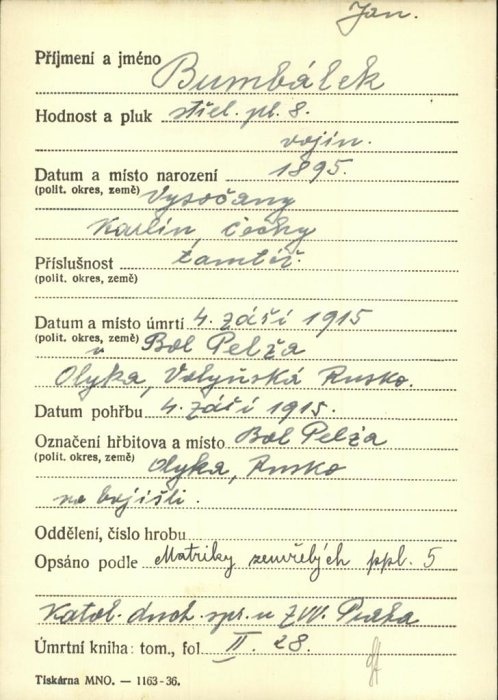 Jan.
Příjmení a jméno Bumbálek
Hodnost a pluk střel. pl. 8.
vojín.
Datum a místo narození 1895.
(polit. okres, země) Vysočany
Karlín Čechy
Příslušnost tamtéž.
(polit. okres, země)
Datum a místo úmrtí 4. září 1915
(polit. okres, země) u Bol Pelža
Olyka, Volyňská Rusko.
Datum pohřbu 4. září 1915.
Označení hřbitova a místo Bol Pelža
(polit. okres, země) Olyka, Rusko
na bojišti.
Oddělení, číslo hrobu
Opsáno podle Matriky zemřelých ppl. 5
Katol. duch. spr. u ZVV. Praha
Úmrtní kniha: tom., fol. II. 28.
Tiskárna MNO. — 1163-36.